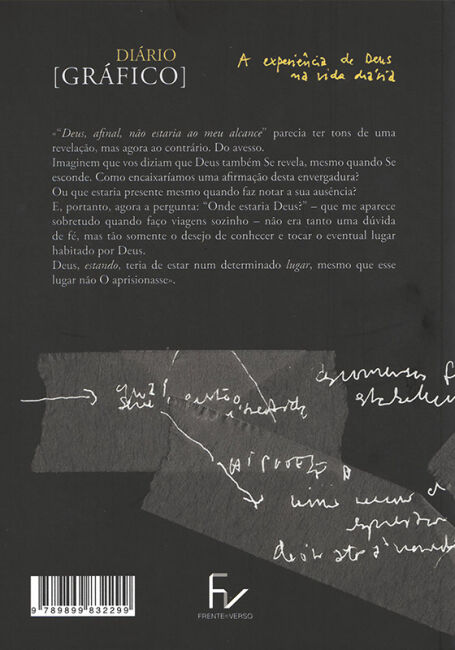 DIÁRIO
[GRÁFICO]
A experiência de Deus
na vida diária
«“Deus, afinal, não estaria ao meu alcance” parecia ter tons de uma
revelação, mas agora ao contrário. Do avesso.
Imaginem que vos diziam que Deus também Se revela, mesmo quando Se
esconde. Como encaixaríamos uma afirmação desta envergadura?
Ou que estaria presente mesmo quando faz notar a sua ausência?
E, portanto, agora a pergunta: “Onde estaria Deus?” – que me aparece
sobretudo quando faço viagens sozinho – não era tanto uma dúvida
de fé, mas tão somente o desejo de conhecer e tocar o eventual lugar
habitado por Deus.
Deus, estando, teria de estar num determinado lugar, mesmo que esse
lugar não O aprisionasse».
9 789899 832299
FV
FRENTE E VERSO